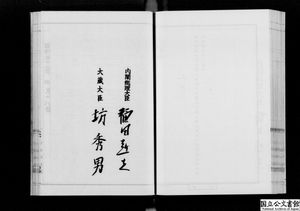 内閣総理大臣
福田赳夫
大蔵大臣
坊秀男
国立公文書館
National Archives of Japan